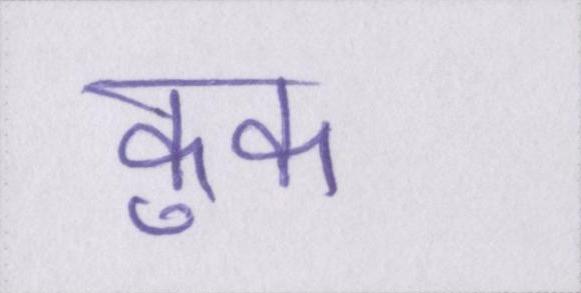 कुक